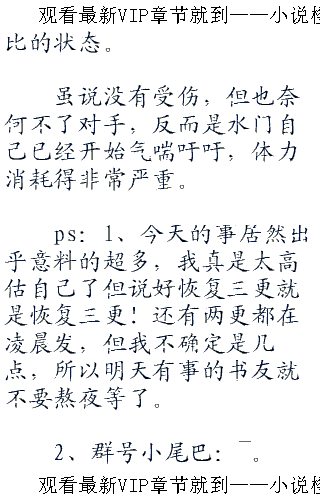 观看最新VIP章节就到——小说
比的状态。
虽说没有受伤，但也奈
何不了对手，反而是水门自
己已经开始气喘吁吁，体力
消耗得非常严重。
ps：1、今天的事居然出
乎意料的超多，我真是太高
估自己了但说好恢复三更就
是恢复三更！还有两更都在
凌晨发，但我不确定是几
点，所以明天有事的书友就
不要熬夜等了。
2、群号小尾巴：¯。
观看最新VIP章节就到——小说